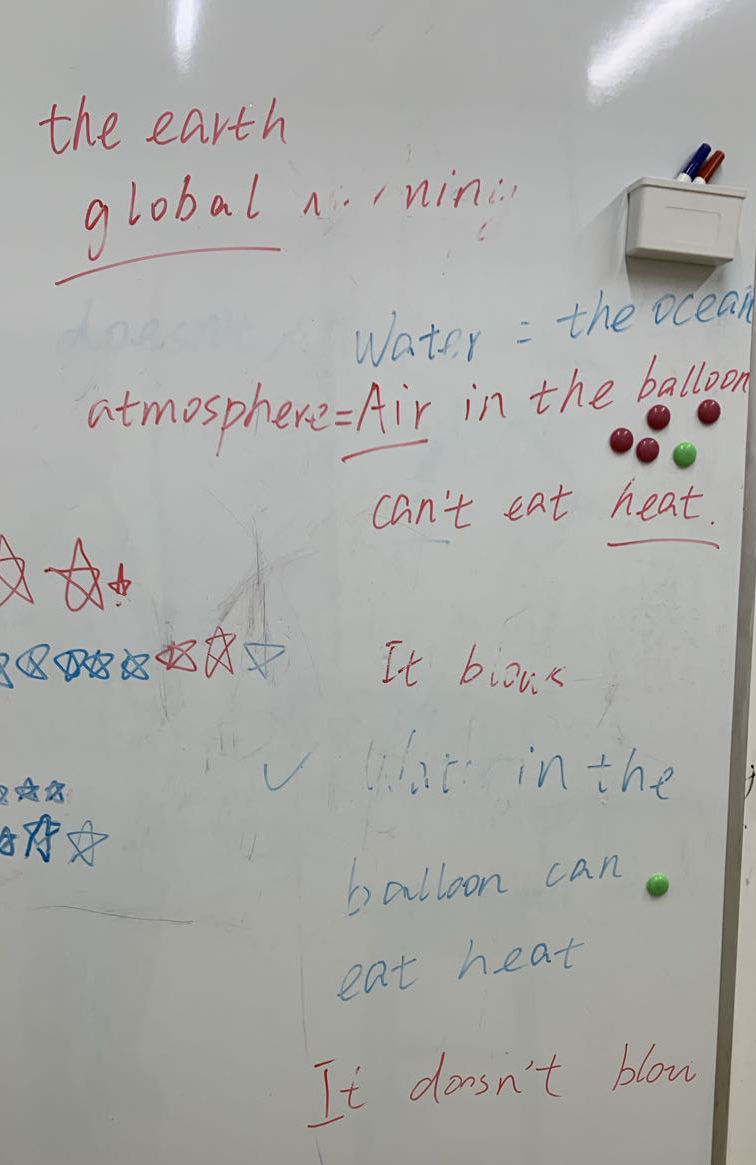 the earth
global
doesn't
Water = the ocean
atmosphere = Air in the balloon
can't eat heat.
It
in the
balloon can
eat heat
It doesn't